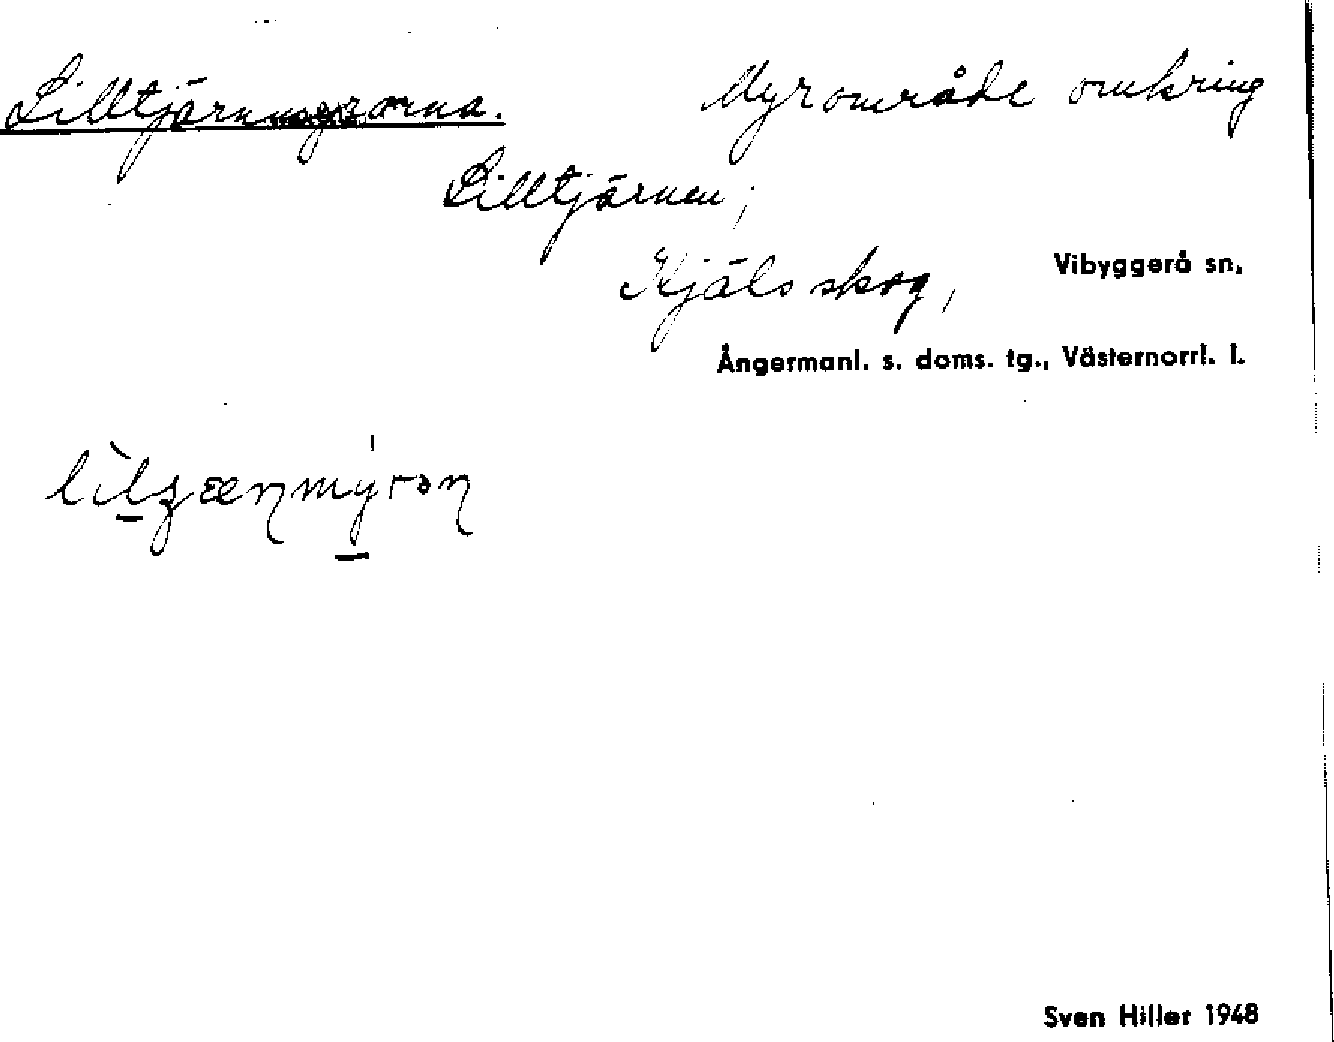 Lilltjärnmyrorna. Myrområde omkring
Lilltjärnen,
Kjäls skog, Vibyggerå sn,
Ångermanl. s. doms. tg., Västernorrl. l.
Sven Hiller 1948